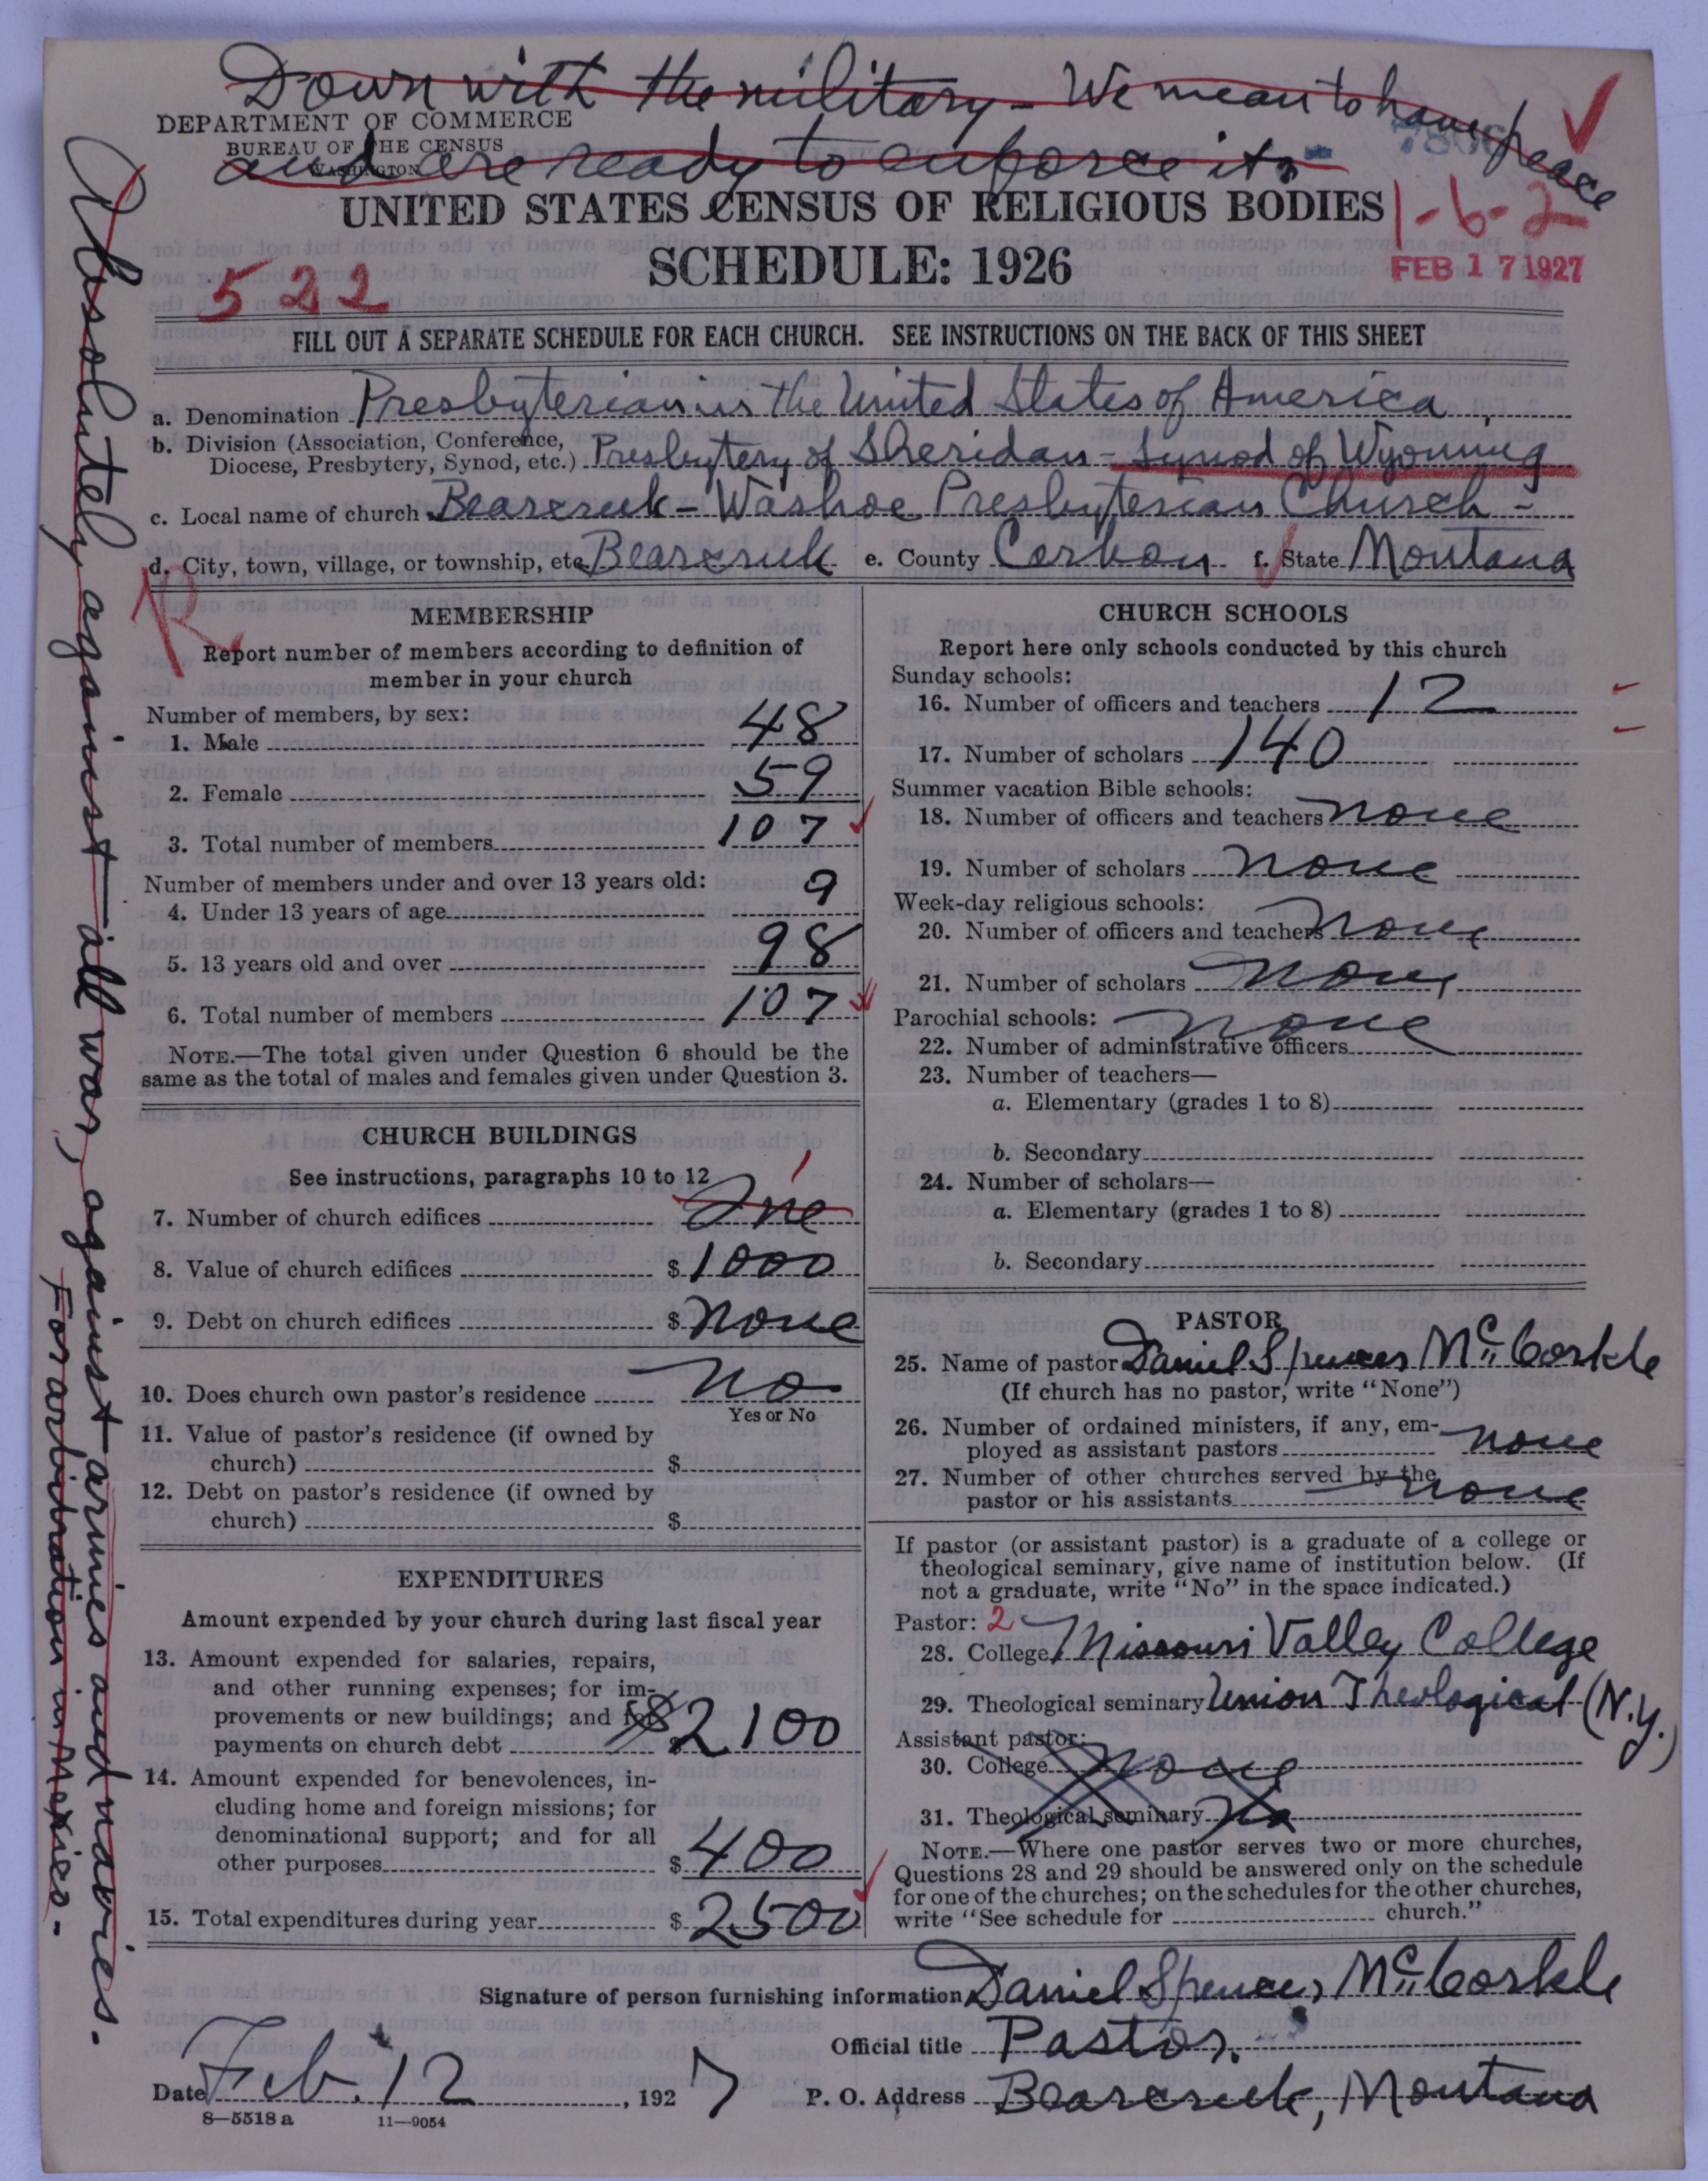 Down with the military - We mean to have peace
and are ready to enforce it.
DEPARTMENT OF COMMERCE
BUREAU OF THE CENSUS
WASHINGTON
UNITED STATES CENSUS OF RELIGIOUS BODIES
1-6-2
SCHEDULE: 1926
522
FEB 17 1927
FILL OUT A SEPARATE SCHEDULE FOR EACH CHURCH. SEE INSTRUCTIONS ON THE BACK OF THIS SHEET
a. Denomination Presbyterian in the United States of America
b. Division (Association, Conference, Diocese, Presbytery, Synod, etc.) Presbytery of Sheridan - Synod of Wyoming
c. Local name of church Bearcreek - Washoe Presbyterian Church -
d. City, town, village, or township, etc. Bearcreek e. County Carbon f. State Montana
R
MEMBERSHIP
Report number of members according to definition of
member in your church
Number of members, by sex:
1. Male 48
2. Female 59
3. Total number of members 107
Number of members under and over 13 years old:
4. Under 13 years of age 9
5. 13 years old and over 98
6. Total number of members 107
NOTE.—The total given under Question 6 should be the
same as the total of males and females given under Question 3.
CHURCH BUILDINGS
See instructions, paragraphs 10 to 12
7. Number of church edifices One 1
8. Value of church edifices $ 1000
9. Debt on church edifices $ none
10. Does church own pastor's residence No
Yes or No
11. Value of pastor's residence (if owned by
church) $
12. Debt on pastor's residence (if owned by
church) $
EXPENDITURES
Amount expended by your church during last fiscal year
13. Amount expended for salaries, repairs,
and other running expenses; for im-
provements or new buildings; and for
payments on church debt $ 2100
14. Amount expended for benevolences, in-
cluding home and foreign missions; for
denominational support; and for all
other purposes $ 400
15. Total expenditures during year $ 2500
CHURCH SCHOOLS
Report here only schools conducted by this church
Sunday schools:
16. Number of officers and teachers 12
17. Number of scholars 140
Summer vacation Bible schools:
18. Number of officers and teachers none
19. Number of scholars none
Week-day religious schools:
20. Number of officers and teachers none
21. Number of scholars none
Parochial schools: none
22. Number of administrative officers
23. Number of teachers—
a. Elementary (grades 1 to 8)
b. Secondary
24. Number of scholars—
a. Elementary (grades 1 to 8)
b. Secondary
PASTOR
25. Name of pastor Daniel Spencer McCorkle
(If church has no pastor, write "None")
26. Number of ordained ministers, if any, em-
ployed as assistant pastors none
27. Number of other churches served by the
pastor or his assistants none
If pastor (or assistant pastor) is a graduate of a college or
theological seminary, give name of institution below. (If
not a graduate, write "No" in the space indicated.)
Pastor: 2
28. College Missouri Valley College
29. Theological seminary Union Theological (N.Y.)
Assistant pastor:
30. College None
31. Theological seminary No
NOTE.—Where one pastor serves two or more churches,
Questions 28 and 29 should be answered only on the schedule
for one of the churches; on the schedules for the other churches,
write "See schedule for church."
Signature of person furnishing information Daniel Spencer McCorkle
Official title Pastor.
Date Feb. 12, 1927 P. O. Address Bearcreek, Montana
8—5518 a 11—9054
Absolutely against all war, against armies and navies.
For arbitration in Mexico.